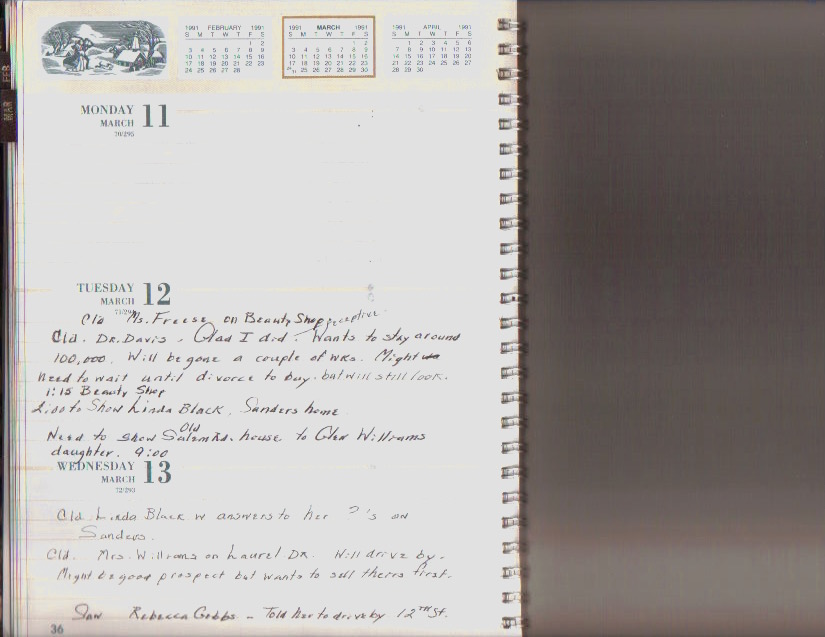 1991 FEBRUARY 1991
S M T W T F S
1 2
3 4 5 6 7 8 9
10 11 12 13 14 15 16
17 18 19 20 21 22 23
24 25 26 27 28
1991 MARCH 1991
S M T W T F S
1 2
3 4 5 6 7 8 9
10 11 12 13 14 15 16
17 18 19 20 21 22 23
24/31 25 26 27 28 29 30
1991 APRIL 1991
S M T W T F S
1 2 3 4 5 6
7 8 9 10 11 12 13
14 15 16 17 18 19 20
21 22 23 24 25 26 27
28 29 30
FEB
MAR
MONDAY 11
MARCH
70/295
TUESDAY 12
MARCH
71/294
Cld Ms. Freese on Beauty Shop receptive
Cld. Dr. Davis - Glad I did. Wants to stay around
100,000. Will be gone a couple of wks. Might
need to wait until divorce to buy. but will still look.
1:15 Beauty Shop
2:00 to Show Linda Black. Sanders home
Need to show Old Salem Rd. house to Glen Williams
daughter. 9:00
WEDNESDAY 13
MARCH
72/293
Cld Linda Black w answers to her ?'s on
Sanders.
Cld. Mrs. Williams on Laurel Dr. Will drive by.
Might be good prospect but wants to sell theirs first.
Saw Rebecca Gobbs - Told her to drive by 12TH St.
36